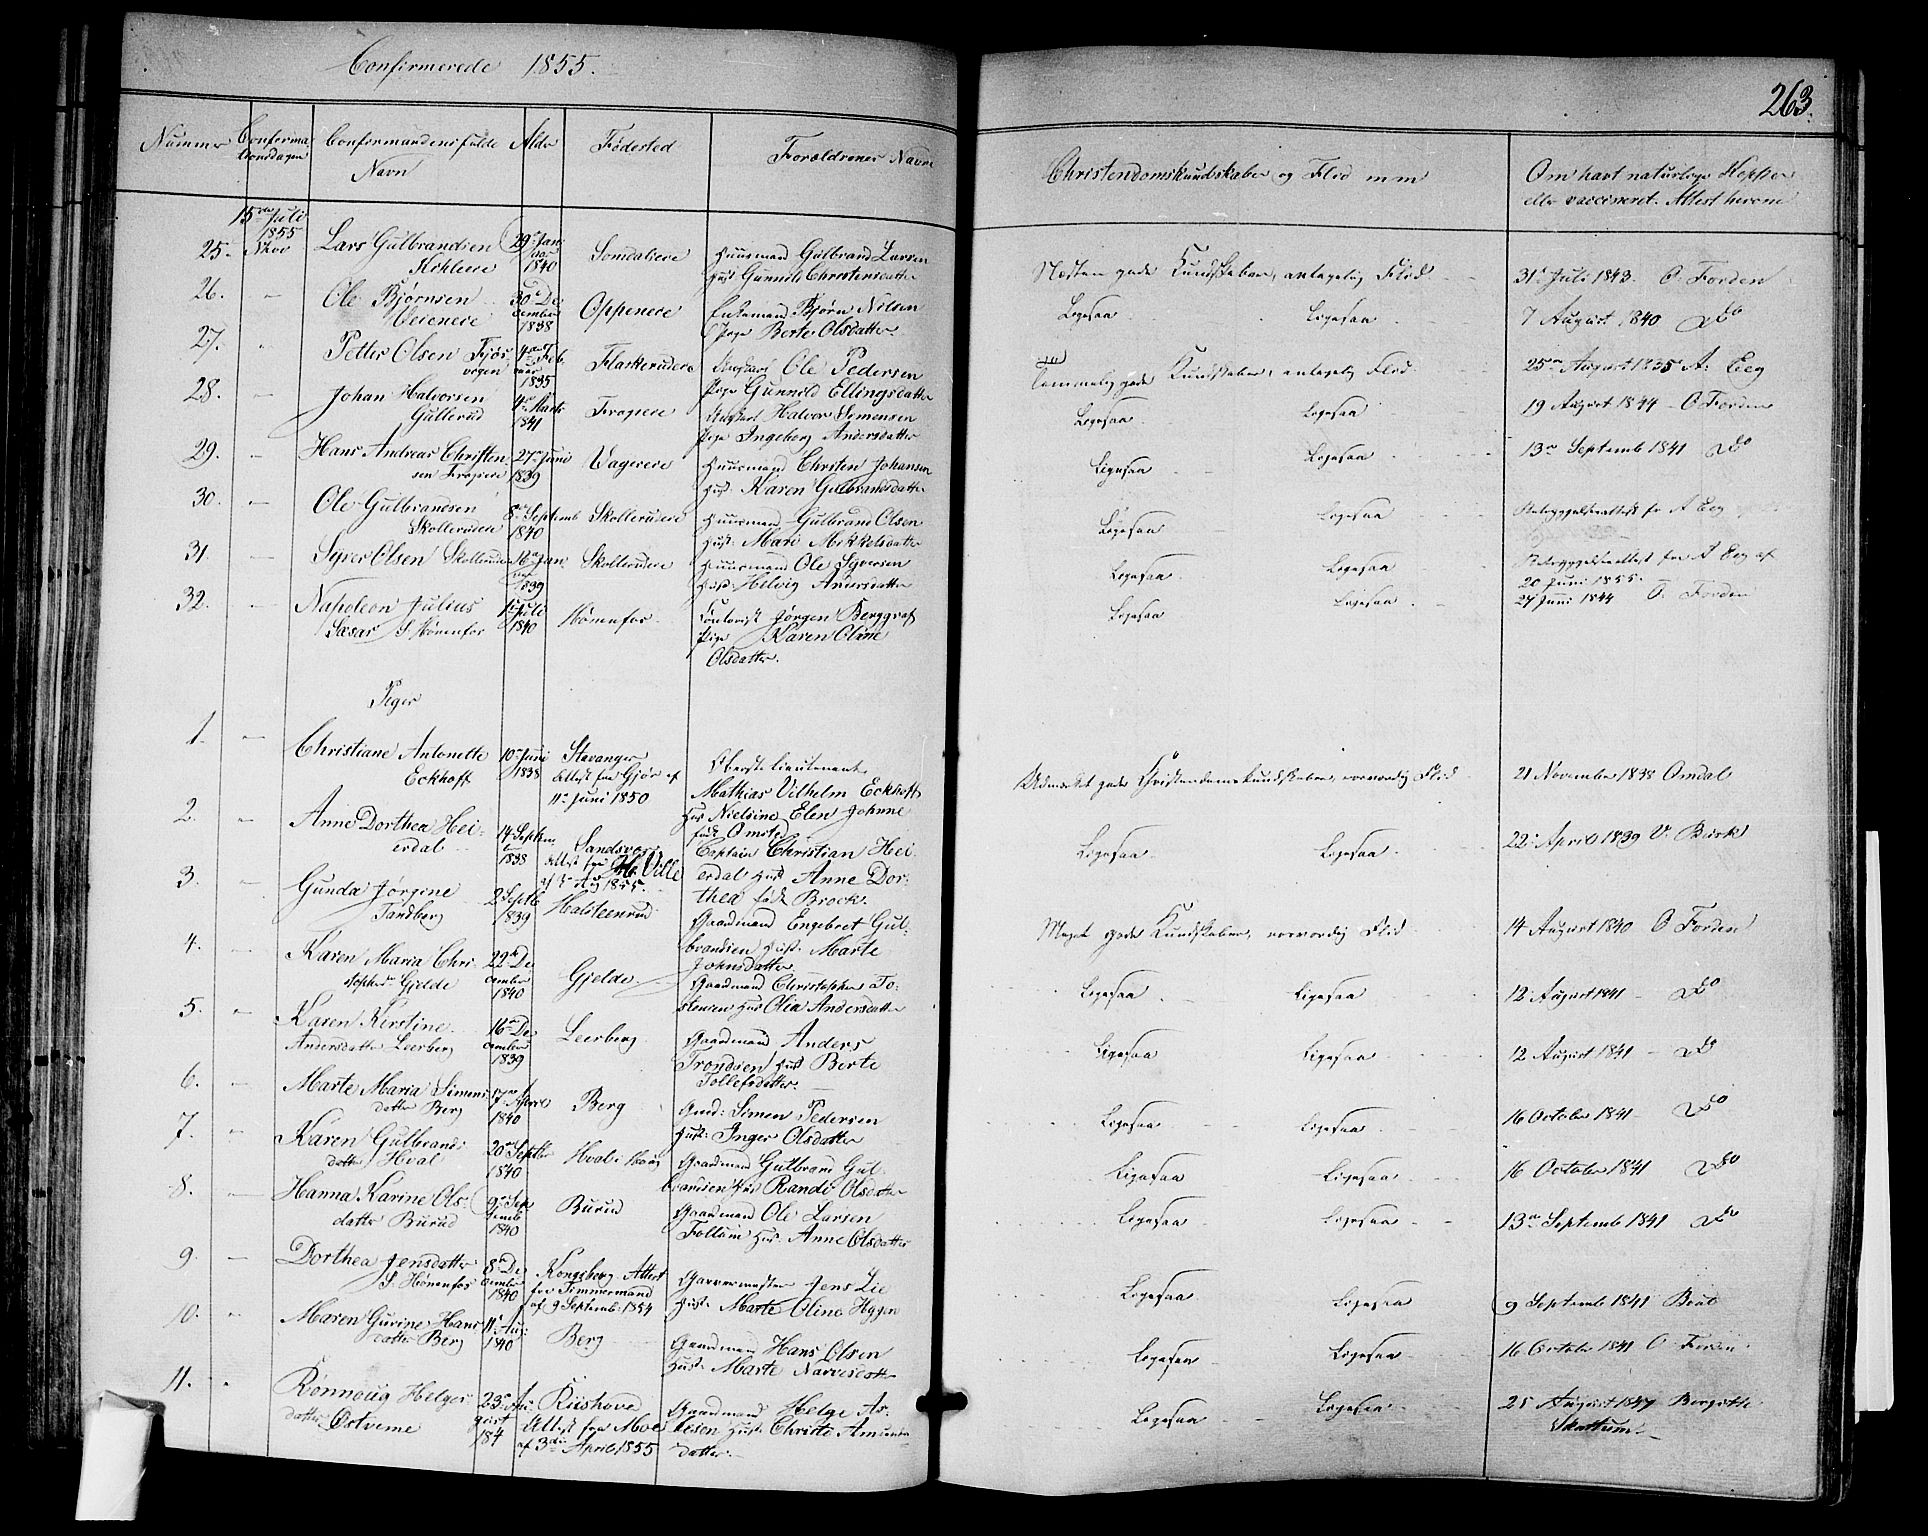 Confirmerede 1855.
263.
Nummer
Confirma
tionsdagen
Confirmandens fulde
Navn
Alder
Fødested
Forældrenes Navne
Christendomskundskaber og Flid m m
Om havt naturlige Kopper
eller vaccineret. Attest herom
15de Juli
1855
25. Lars Gulbrandsen 29 Jan 1840 Husmand Gulbrand Larsen
Hust. Gunnild Christensdatter
Næsten gode Kundskaber, antagelig Flid 31 Juli 1843. O Forden
26. Ole Bjørnsen 30 De
cember
1838 Enkemand Bjørn Nilsen
Pige Berte Olsdatter
Ligesaa Ligesaa 7 August 1840 Do
27. Petter Olsen 4 Feb
1835 Ungkarl Ole Pedersen
Pige Gunnild Ellingsdatter
Temmelig gode Kundskaber, antagelig Flid 25 August 1835 A: Eeg
28. Johan Halvorsen
Gullerud 4 Marts
1841 Ungkarl Halvor Simensen
Pige Ingeborg Andersdatter
Ligesaa Ligesaa 19 August 1844 O Forden
29. Hans Andreas Christen
sen 27 Juni
1839 Huusmand Christen Johansen
Hust. Karen Gulbrandsdatter
Ligesaa Ligesaa 13 Septemb 1841 Do
30. Ole Gulbrandsen
Skollerudeie 8 Septemb
1840 Skollerudeie Huusmand Gulbrand Olsen
Hust: Mari Mikkelsdatter
Ligesaa Ligesaa A Eeg
31. Syver Olsen 16 Jan
1839 Skollerudeie Huusmand Ole Syversen
Hust: Helvig Andersdatter
Ligesaa Ligesaa A Eeg af
20 Juni 1855.
32. Napoleon Julius
Sæsar S. Hønenfos 1 Juli
1840 Hønenfos Jørgen Berggraf
Pige Karen Oline
Olsdatter.
Ligesaa Ligesaa 27 Juni 1844 O. Forden
Piger
1. Christiane Antonette
Eckhoff 10 Juni
1838 Stavanger
Attest fra Gjør af
11 Juni 1850 Oberstelieutenant
Mathias Vilhelm Eckhoff
Hus Nielsine Elen Johnne
født Omsted
Udmærket gode Christendomskundskaber, roesværdig Flid 21 November 1838 Omdal
2. Anne Dorthea Hei-
erdal 14 Septem
1838 Sandsvær
Attest fra Ville
Captain Christian Hei-
erdal Hust Anne Dor-
thea født Brock.
Ligesaa Ligesaa 22 April 1839
3. Gunda Jørgine
Tandberg 2 Septb
1839 Halsteenrud Gaardmand Engebret Gul-
brandsen Hust: Marte
Johnsdatter
Meget gode Kundskaber, roesværdig Flid 14 August 1840 O Forden
4. Karen Maria Chri-
stophersd Gjelde 22 De
cember
1840 Gjelde Gaardmand Christopher To-
stensen Hus Olia Andersdatter
Ligesaa Ligesaa 12 August 1841 Do
5. Karen Kirstine
Andersdatter Leerberg 16 De
cember
1839 Leerberg Gaardmand Anders
Trondsen Hust Berte
Tollefsdatter.
Ligesaa Ligesaa 12 August 1841 Do
6. Marte Maria Simens
datter Berg 17 April
1840 Berg Gmd: Simen Pedersen
Hust: Inger Olsdatter
Ligesaa Ligesaa 16 October 1841 Do
7. Karen Gulbrands
datter Hval 20 Septbr
1840 Hval Gaardmand Gulbrand Gul-
brandsen Hus Randi Olsdatter
Ligesaa Ligesaa 16 October 1841 Do
8. Hanna Karine Ols-
datter Burud 9 Sep
temb
1840 Burud Gaardmand Ole Larsen
Follum Hus. Anne Olsdatter
Ligesaa Ligesaa 13 Septemb 1841 Do
9. Dorthea Jensdatter
S. Hønenfos 8 De
cember
1840 Kongsberg Attest
fra Timmermand
af 9 Septemb. 1854 Garvermester Jens Lie
Hust. Marte Oline Hygen
Ligesaa Ligesaa 9 Septemb 1841
10. Maren Gurine Hans
datter Berg 11 Aug:
1840 Berg Gaardmand Hans Olsen
Hust: Marte Narvesdatt
Ligesaa Ligesaa 16 October 1841 O Forden
11. Rønnoug Helges
datter Østveme 23 Au
gust
184 Attest fra Moe
af 3die April 1855 Gaardmand Helge As-
lesen Hust: Christi Amunds
datter.
Ligesaa Ligesaa 25 August 1847
Skattum